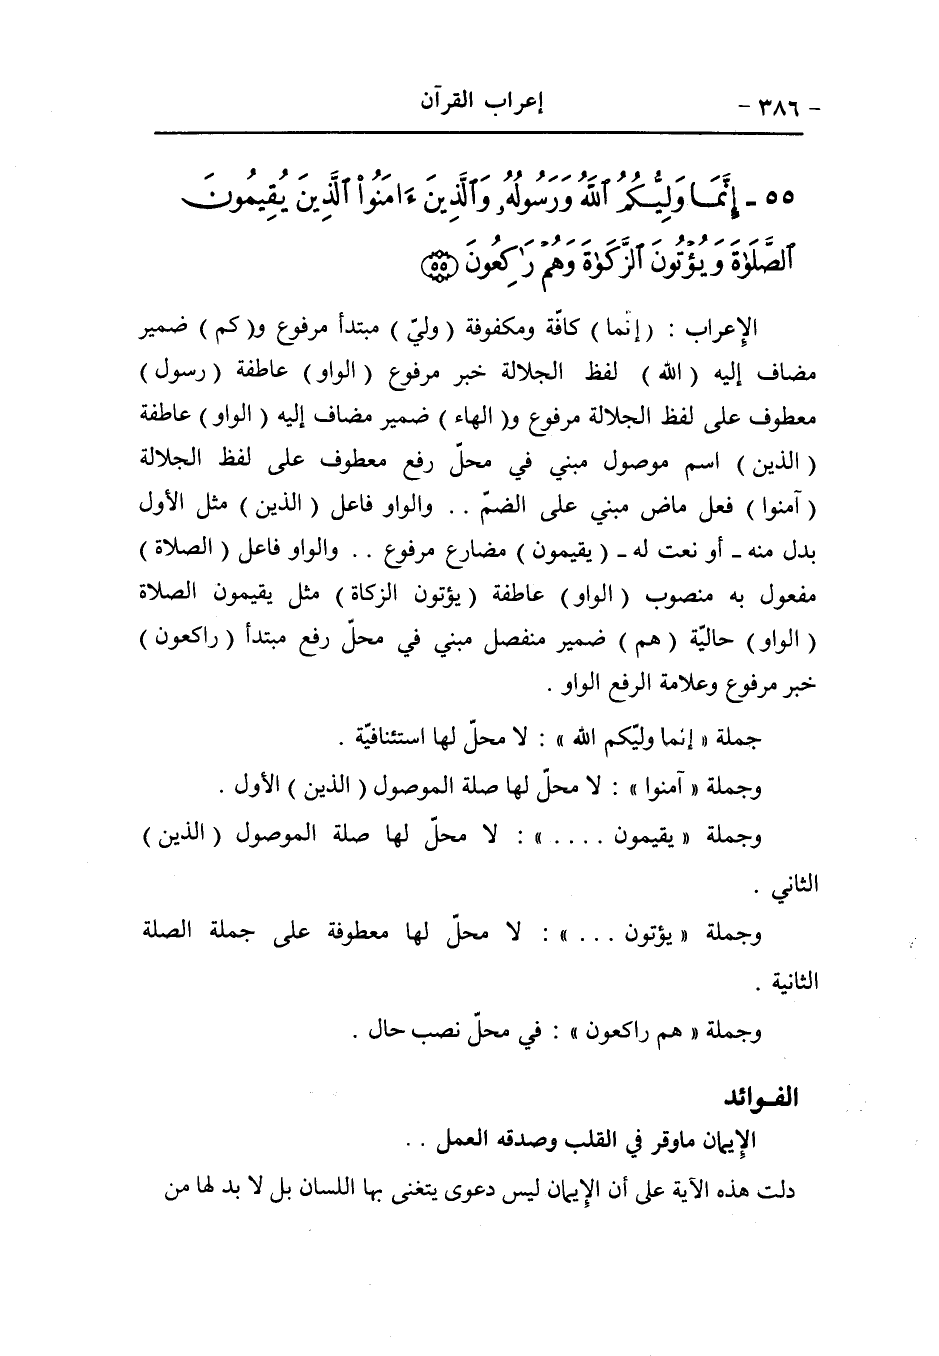 - ٣٨٦ - إعراب القرآن
٥٥ - إِنَّمَا وَلِيُّكُمُ ٱللَّهُ وَرَسُولُهُۥ وَٱلَّذِينَ ءَامَنُوا۟ ٱلَّذِينَ يُقِيمُونَ
ٱلصَّلَوٰةَ وَيُؤْتُونَ ٱلزَّكَوٰةَ وَهُمْ رَٰكِعُونَ (٥٥)
الإعراب : ( إنّما ) كافّة ومكفوفة ( وليّ ) مبتدأ مرفوع و( كم ) ضمير
مضاف إليه ( الله ) لفظ الجلالة خبر مرفوع ( الواو ) عاطفة ( رسول )
معطوف على لفظ الجلالة مرفوع و( الهاء ) ضمير مضاف إليه ( الواو ) عاطفة
( الذين ) اسم موصول مبني في محلّ رفع معطوف على لفظ الجلالة
( آمنوا ) فعل ماض مبني على الضمّ . . والواو فاعل ( الذين ) مثل الأول
بدل منه - أو نعت له - ( يقيمون ) مضارع مرفوع . . والواو فاعل ( الصلاة )
مفعول به منصوب ( الواو ) عاطفة ( يؤتون الزكاة ) مثل يقيمون الصلاة
( الواو ) حاليّة ( هم ) ضمير منفصل مبني في محلّ رفع مبتدأ ( راكعون )
خبر مرفوع وعلامة الرفع الواو .
جملة « إنما وليّكم الله » : لا محلّ لها استئنافيّة .
وجملة « آمنوا » : لا محلّ لها صلة الموصول ( الذين ) الأول .
وجملة « يقيمون . . . . » : لا محلّ لها صلة الموصول ( الذين )
الثاني .
وجملة « يؤتون . . . » : لا محلّ لها معطوفة على جملة الصلة
الثانية .
وجملة « هم راكعون » : في محلّ نصب حال .
الفوائد
الإيمان ماوقر في القلب وصدقه العمل . .
دلت هذه الآية على أن الإيمان ليس دعوى يتغنى بها اللسان بل لا بد لها من